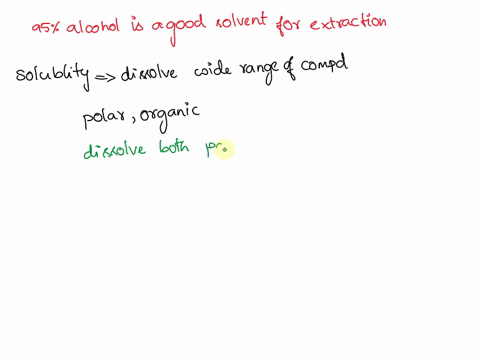 95% alcohol is a good solvent for extraction
solublity => dissolve wide range of compd
polar, organic
dissolve both po